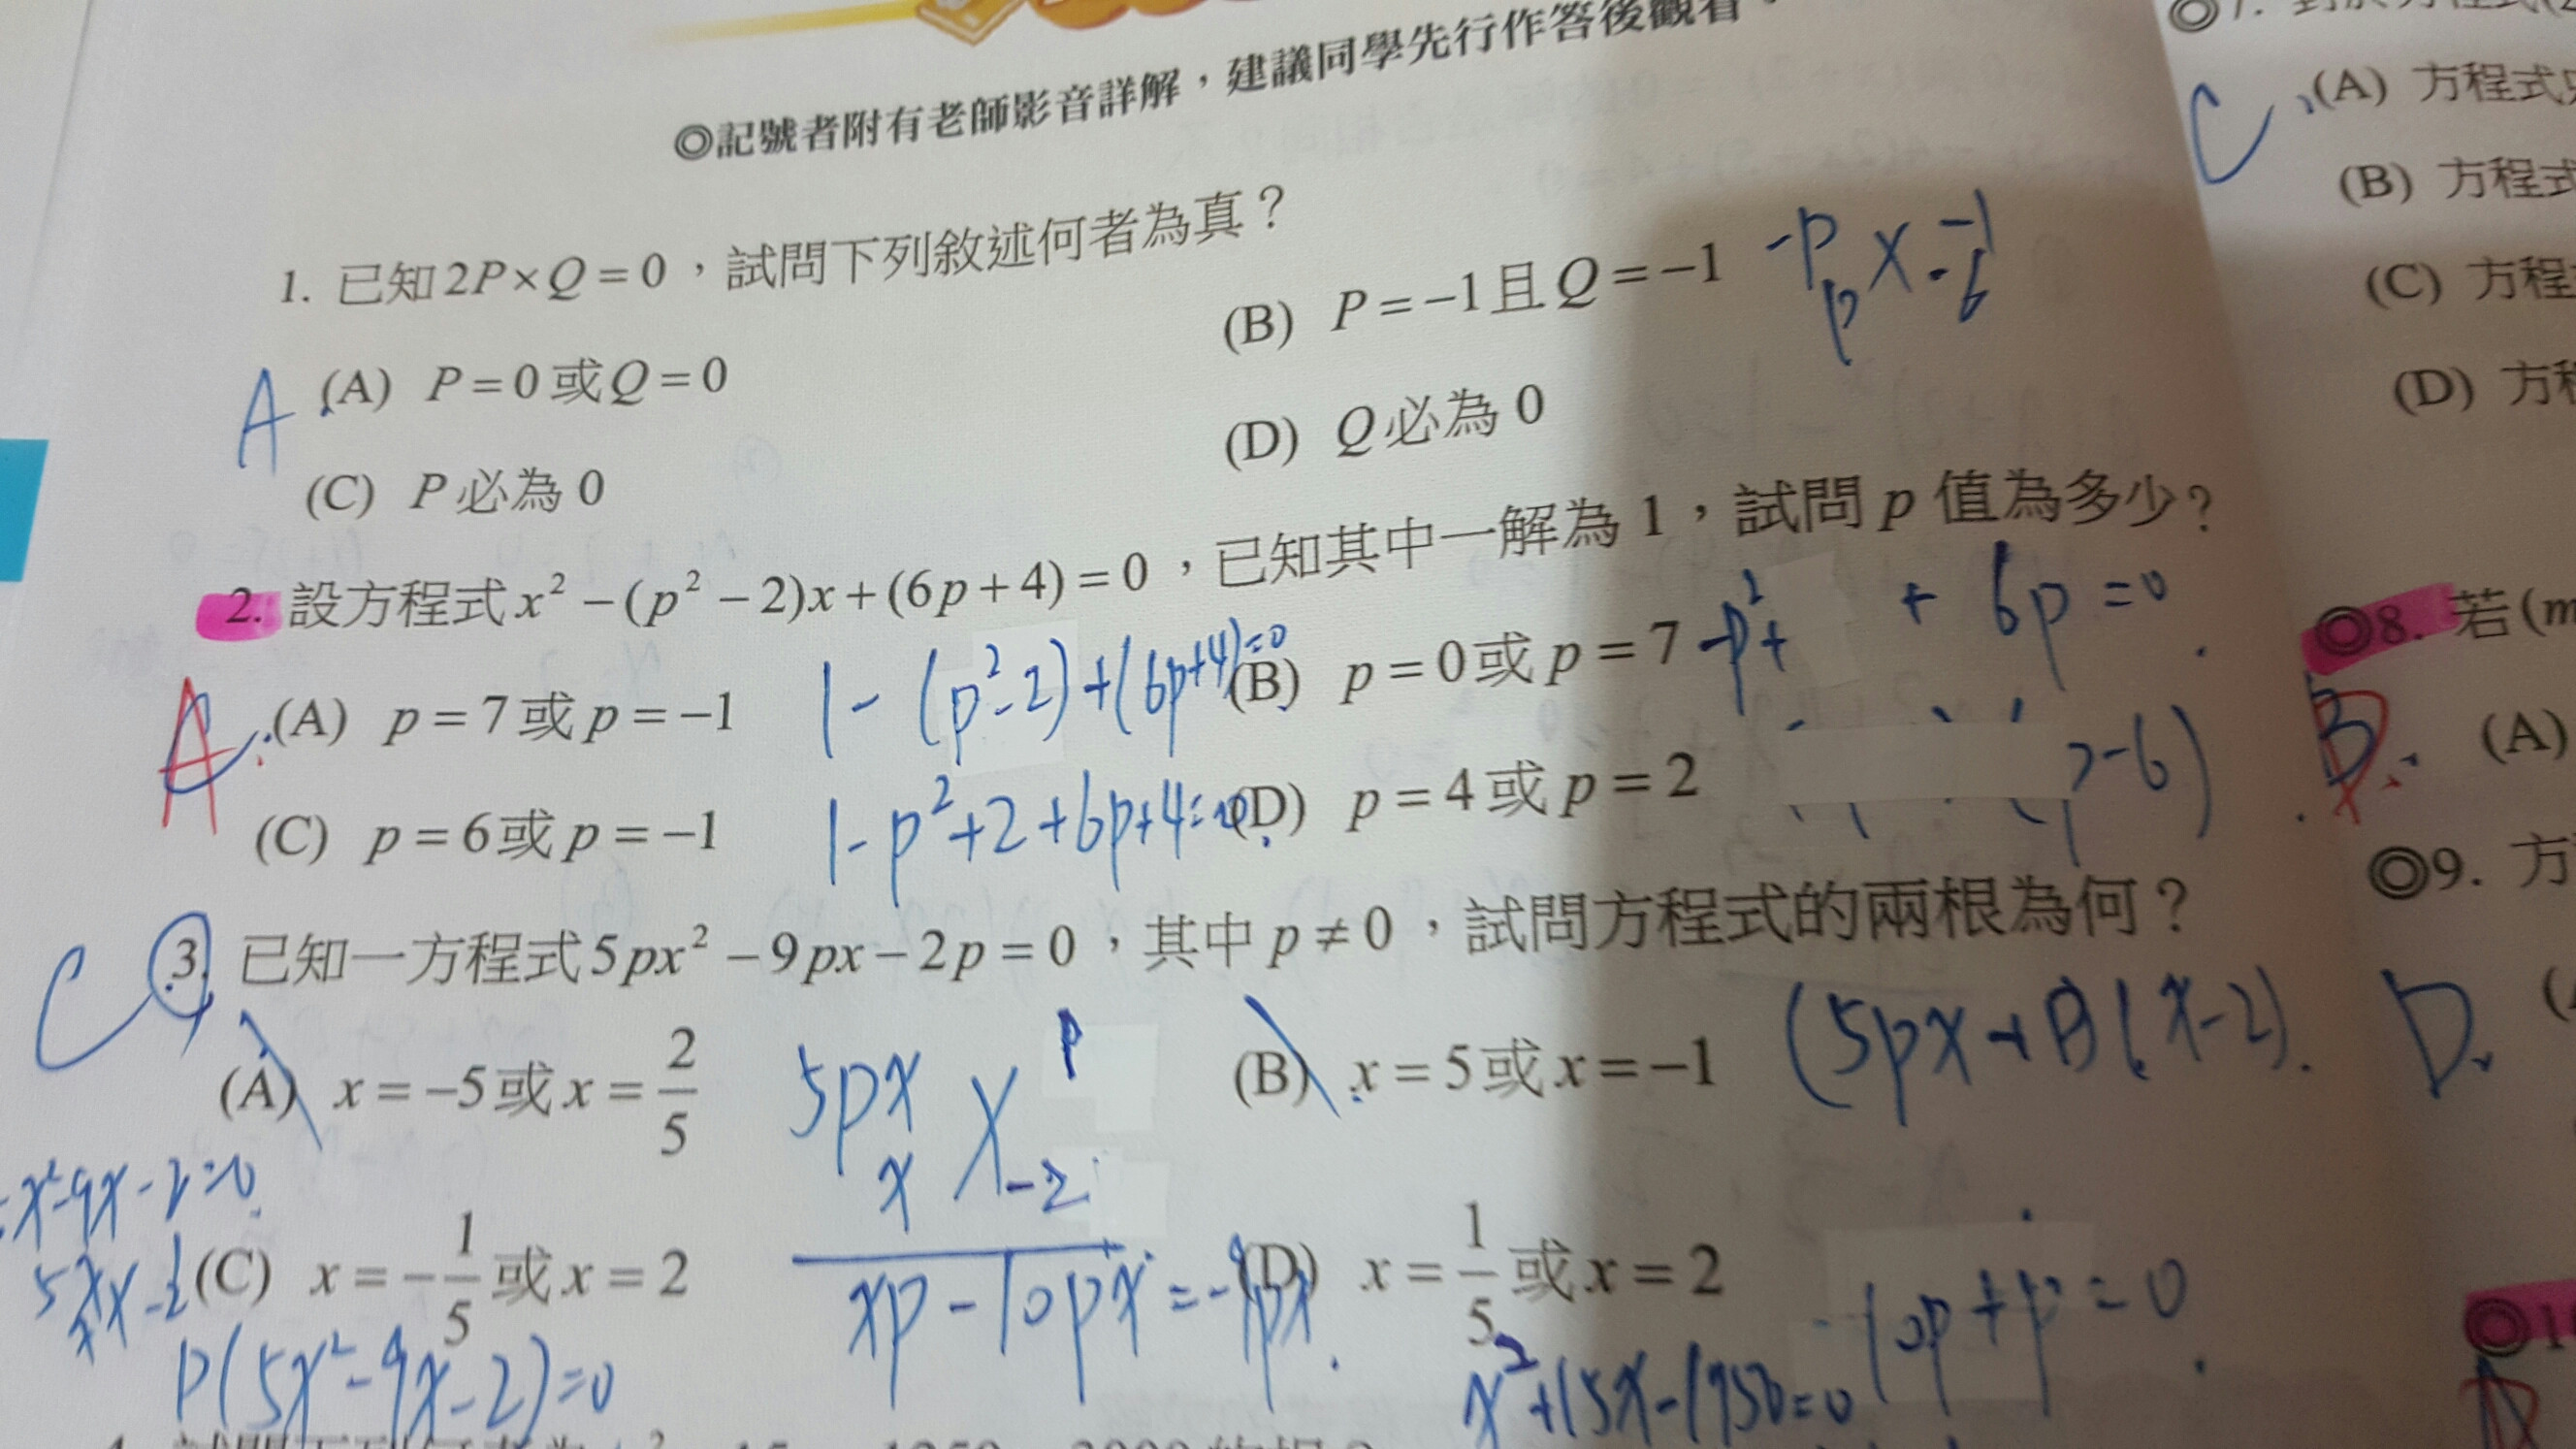 ◎記號者附有老師影音詳解，建議同學先行作答後觀看
1. 已知2P×Q=0，試問下列敘述何者為真？
A (A) P=0或Q=0
(B) P=-1且Q=-1
(C) P必為0
(D) Q必為0
-p -1
p -6
2. 設方程式x²-(p²-2)x+(6p+4)=0，已知其中一解為1，試問p值為多少？
A (A) p=7或p=-1
1-(p²-2)+(6p+4)=0
(B) p=0或p=7
-p²+ +6p=0
(C) p=6或p=-1
1-p²+2+6p+4=0
(D) p=4或p=2
-6)
C 3. 已知一方程式5px²-9px-2p=0，其中p≠0，試問方程式的兩根為何？
(A) x=-5或x=2/5
(B) x=5或x=-1
5px p
x -2
xp-10px=-9px
(5px+p)(x-2)
x²-9x-2=0
(C) x=-1/5或x=2
(D) x=1/5或x=2
-10p+p=0
P(5x²-9x-2)=0
x²+15x-1750=0
C (A) 方程式
(B) 方程式
(C) 方程
(D) 方程
◎8. 若(m
B (A)
◎9. 方
D